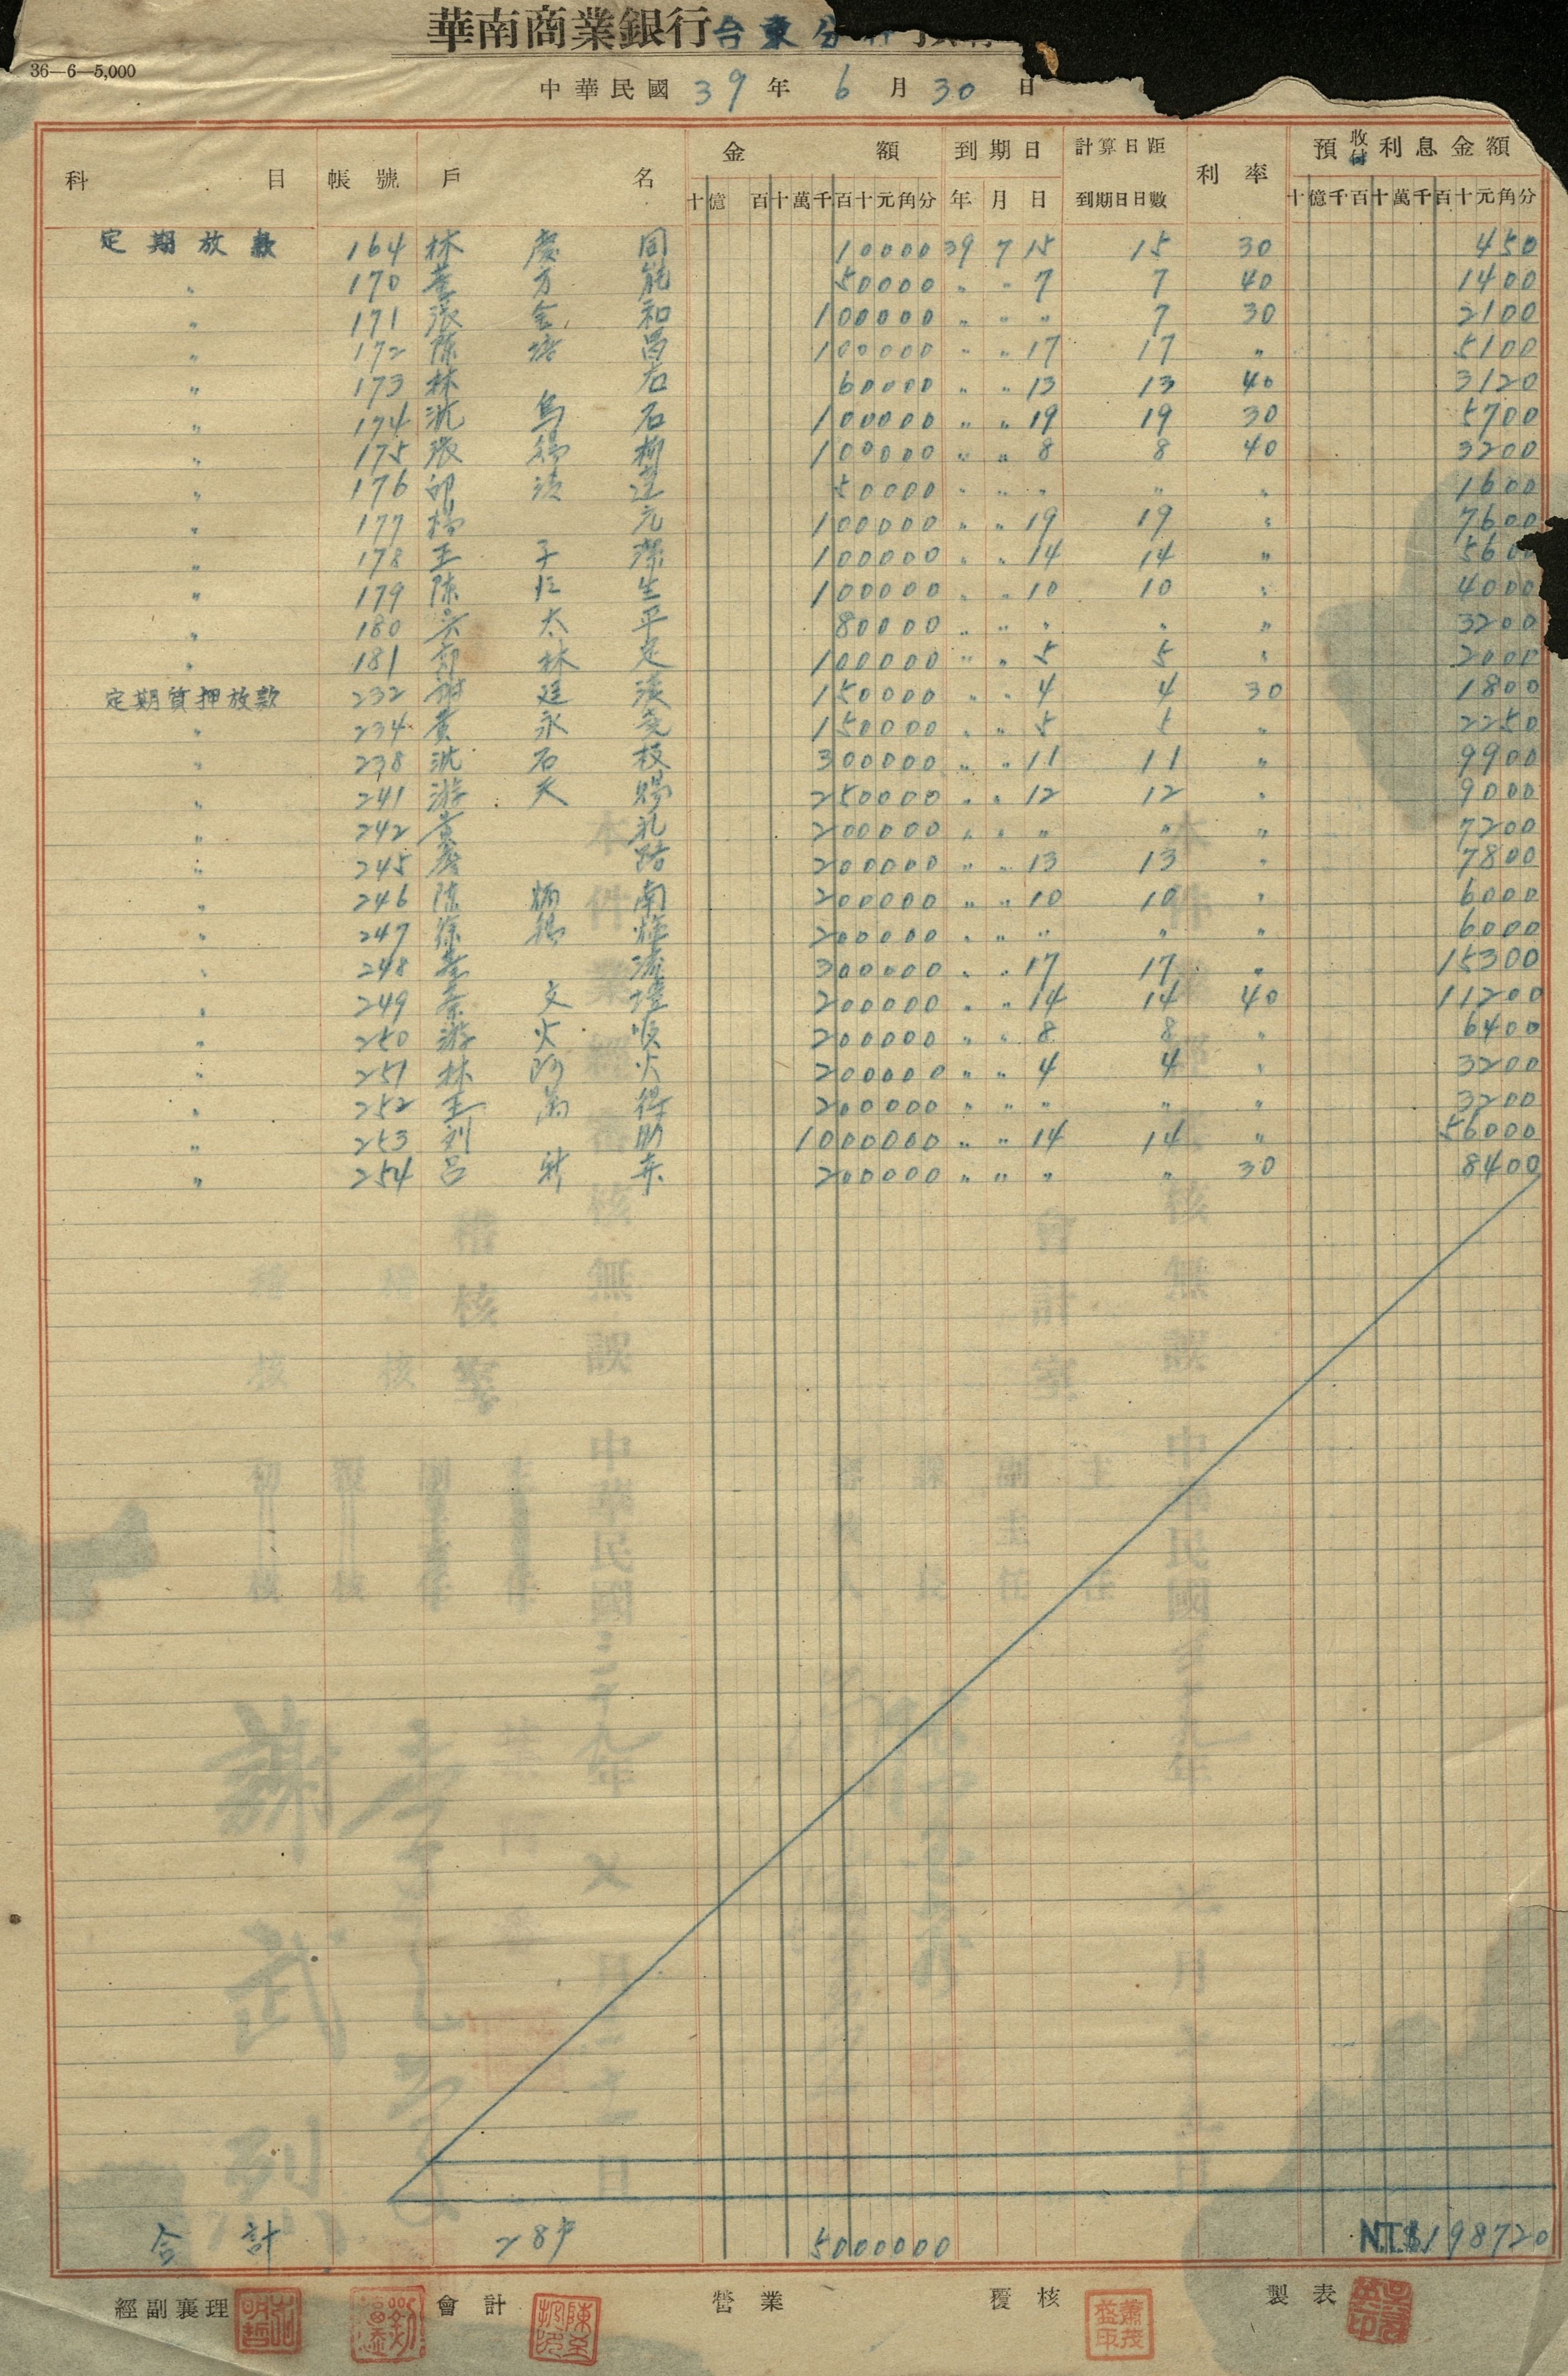 華南商業銀行台東分
36—6—5,000
中華民國 39 年 6 月 30 日
科目 帳號 戶名 金額 到期日 計算日距 利率 預收付利息金額
十億 百十萬千百十元角分 年 月 日 到期日日數 十億千百十萬千百十元角分
定期放款 164 林慶 10000 39 7 15 15 30 450
〃 170 50000 〃 〃 7 7 40 1400
〃 171 張金和 100000 〃 〃 〃 7 30 2100
〃 172 陳培昌 100000 〃 〃 17 17 〃 5100
〃 173 林石 60000 〃 〃 13 13 40 3120
〃 174 沈烏石 100000 〃 〃 19 19 30 5700
〃 175 張錫 100000 〃 〃 8 8 40 3200
〃 176 邱 50000 〃 〃 〃 〃 〃 1600
〃 177 楊元 100000 〃 〃 19 19 〃 7600
〃 178 王子潔 100000 〃 〃 14 14 〃 5600
〃 179 陳仁生 100000 〃 〃 10 10 〃 4000
〃 180 吳太平 80000 〃 〃 〃 〃 〃 3200
〃 181 鄭林定 100000 〃 〃 5 5 〃 2000
定期質押放款 232 謝廷 150000 〃 〃 4 4 30 1800
〃 234 黃永堯 150000 〃 〃 5 5 〃 2250
〃 238 沈石枝 300000 〃 〃 11 11 〃 9900
〃 241 游天賜 250000 〃 〃 12 12 〃 9000
〃 242 黃礼 200000 〃 〃 〃 〃 〃 7200
〃 245 詹 200000 〃 〃 13 13 〃 7800
〃 246 陳炳南 200000 〃 〃 10 10 〃 6000
〃 247 徐錫輝 200000 〃 〃 〃 〃 〃 6000
〃 248 300000 〃 〃 17 17 〃 15300
〃 249 文 200000 〃 〃 14 14 40 11200
〃 250 游火順 200000 〃 〃 8 8 〃 6400
〃 251 林阿火 200000 〃 〃 4 4 〃 3200
〃 252 王萬得 200000 〃 〃 〃 〃 〃 3200
〃 253 列助 1000000 〃 〃 14 14 〃 56000
〃 254 呂新 200000 〃 〃 〃 〃 30 8400
合計 28戶 5000000 N.T.$198720
經副襄理 會計 營業 覆核 蕭茂益印 製表